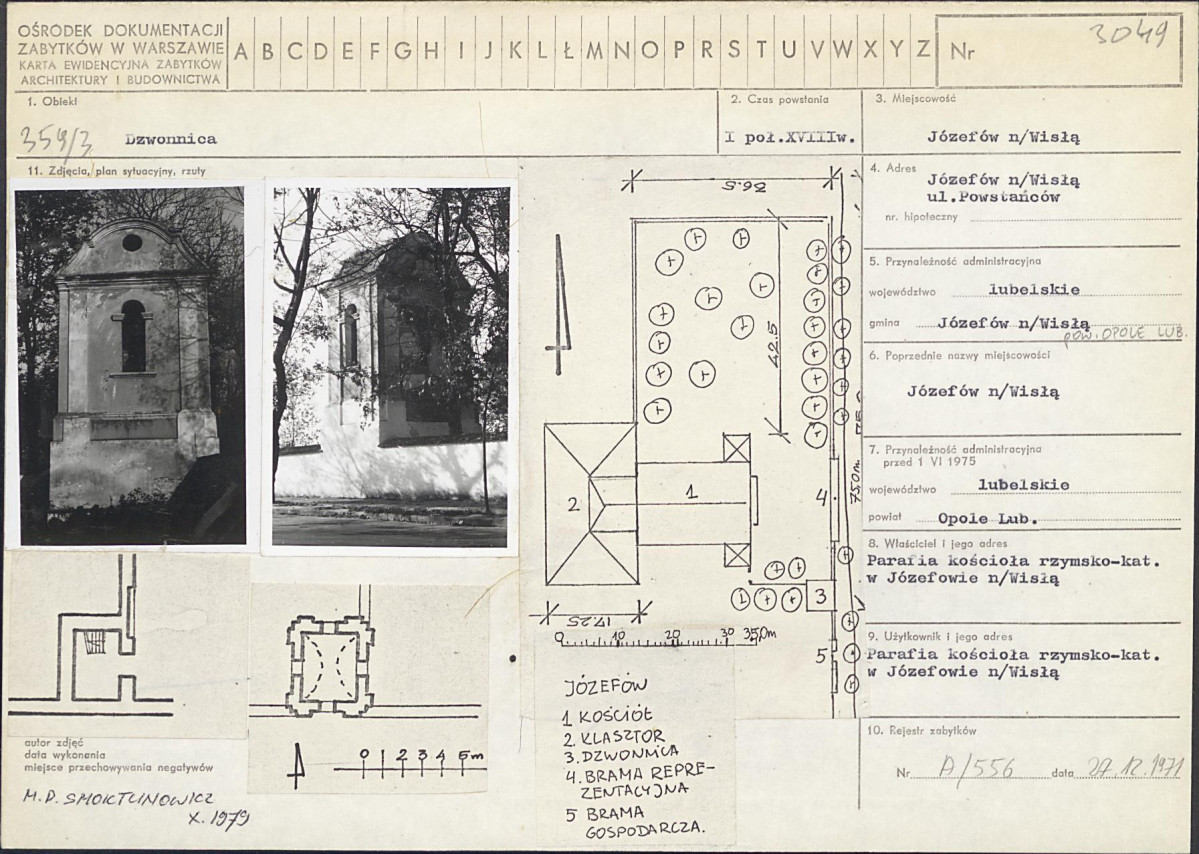 OŚRODEK DOKUMENTACJI
ZABYTKÓW W WARSZAWIE
KARTA EWIDENCYJNA ZABYTKÓW
ARCHITEKTURY I BUDOWNICTWA
A B C D E F G H I J K L Ł M N O P R S T U V W X Y Z
Nr 3049
1. Obiekt
359/3 Dzwonnica
2. Czas powstania
I poł.XVIIIw.
3. Miejscowość
Józefów n/Wisłą
11. Zdjęcia, plan sytuacyjny, rzuty
4. Adres
Józefów n/Wisłą
ul.Powstańców
nr. hipoteczny
5. Przynależność administracyjna
województwo lubelskie
gmina Józefów n/Wisłą
POW. OPOLE LUB.
6. Poprzednie nazwy miejscowości
Józefów n/Wisłą
7. Przynależność administracyjna
przed 1 VI 1975
województwo lubelskie
powiat Opole Lub.
8. Właściciel i jego adres
Parafia kościoła rzymsko-kat.
w Józefowie n/Wisłą
9. Użytkownik i jego adres
Parafia kościoła rzymsko-kat.
w Józefowie n/Wisłą
10. Rejestr zabytków
Nr A/556 data 27.12.1971
36.5
42.5
750m
1
2
4
3
5
17.25
0 10 20 30 35,0m
JÓZEFÓW
1 KOŚCIÓŁ
2. KLASZTOR
3. DZWONNICA
4. BRAMA REPRE-
ZENTACYJNA
5 BRAMA
GOSPODARCZA.
0 1 2 3 4 5m
autor zdjęć
data wykonania
miejsce przechowywania negatywów
M.P. SMOKTUNOWICZ
X. 1979